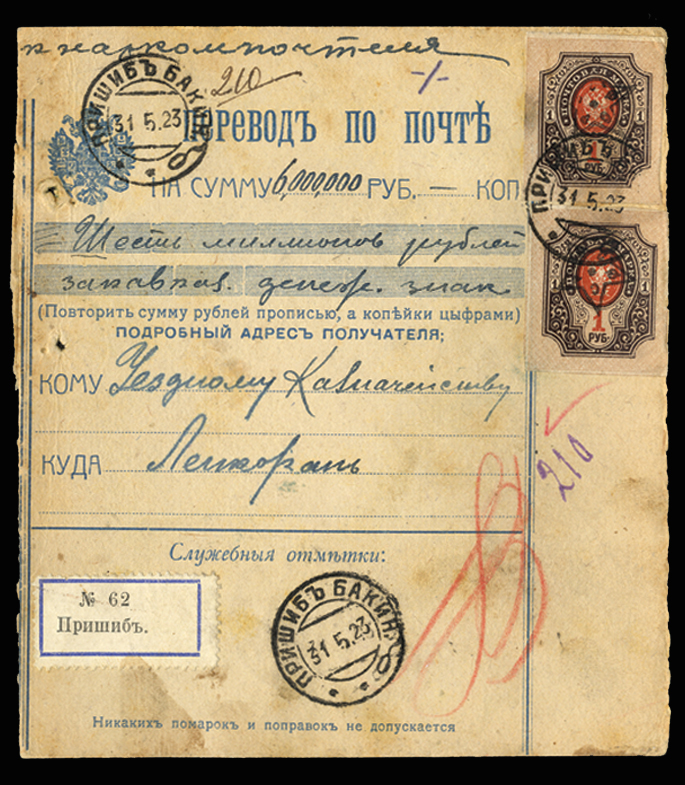 к наркомпочтеля
210
-/-
ПРИШИБЪ БАКИН.
31 5.23
ПЕРЕВОДЪ ПО ПОЧТѢ
НА СУММУ 6,000,000 РУБ. — КОП.
Шесть миллионов рублей
закавказ. денеж. знак
(Повторить сумму рублей прописью, а копѣйки цыфрами)
ПОДРОБНЫЙ АДРЕСЪ ПОЛУЧАТЕЛЯ;
КОМУ Уездному Казначейству
КУДА Ленкорань
ПОЧТОВАЯ МАРКА
1 1
1
РУБ.
ПРИШИБЪ Б
31 5.23
ПОЧТОВАЯ МАРКА
1 1
1
РУБ.
210
Служебныя отмѣтки:
№ 62
Пришибъ.
ПРИШИБЪ БАКИН.
31 5.23
Никакихъ помарокъ и поправокъ не допускается